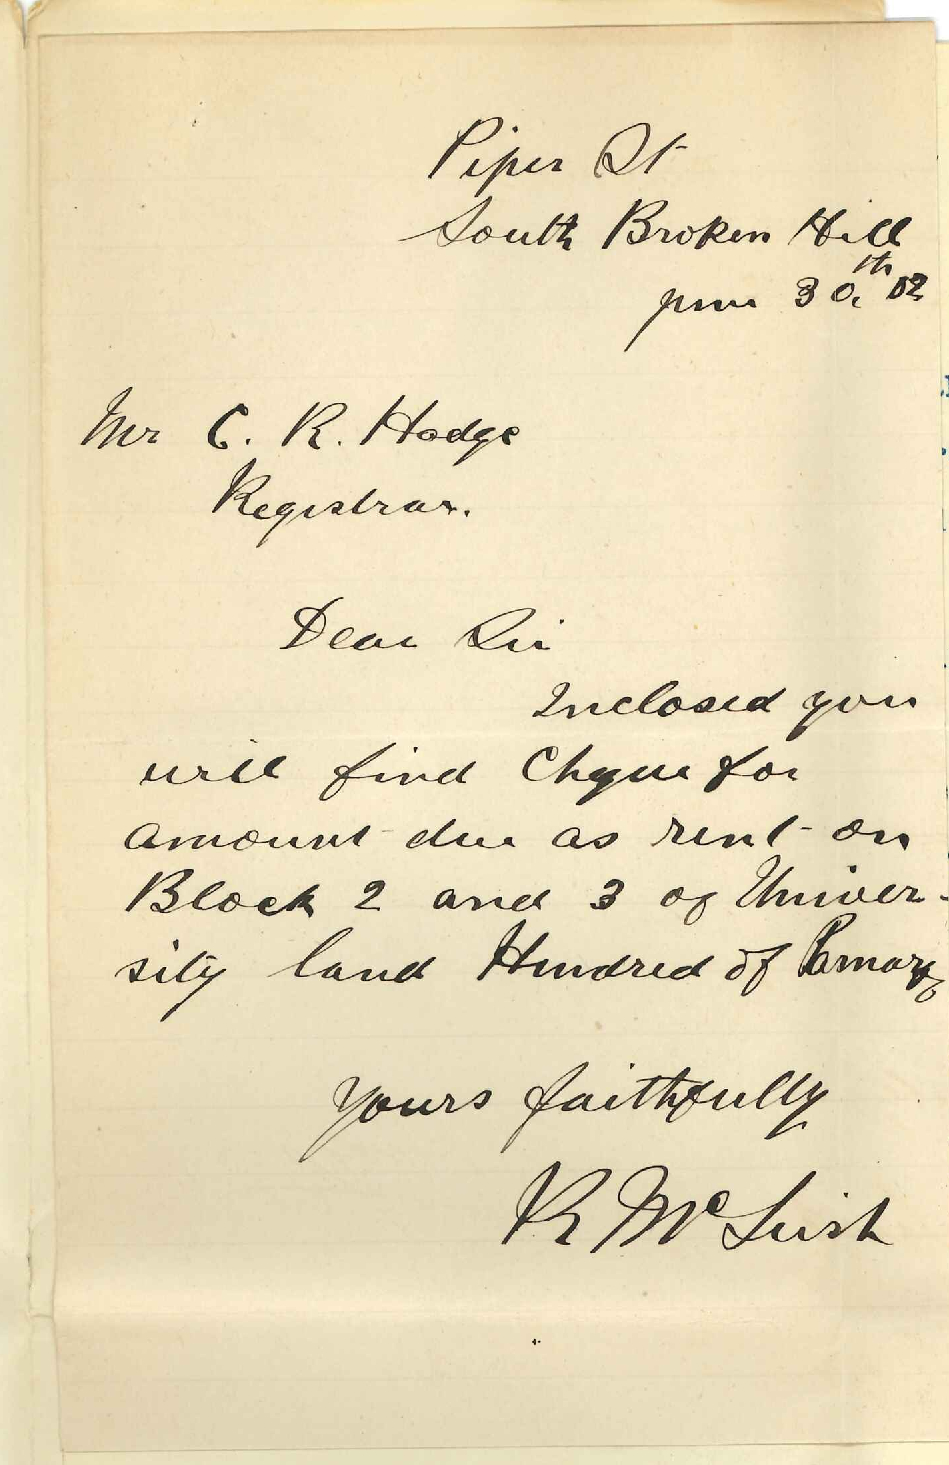 Piper St
South Broken Hill
June 30th 02
Mr C. R. Hodge
Registrar.
Dear Sir
Inclosed you
will find Cheque for
amount due as rent on
Block 2 and 3 of Univer-
sity land Hundred of
Yours faithfully
R McLeish